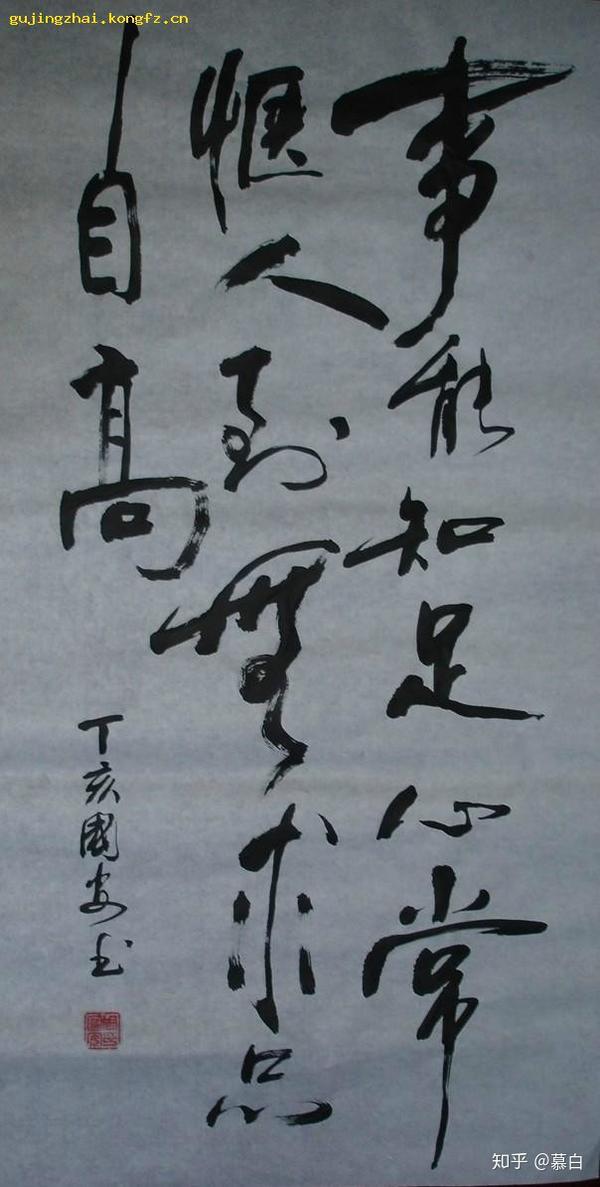 gujingzhai.kongfz.cn
事能知足心常
愜人到無求品
自高
丁亥國安书
知乎 @慕白